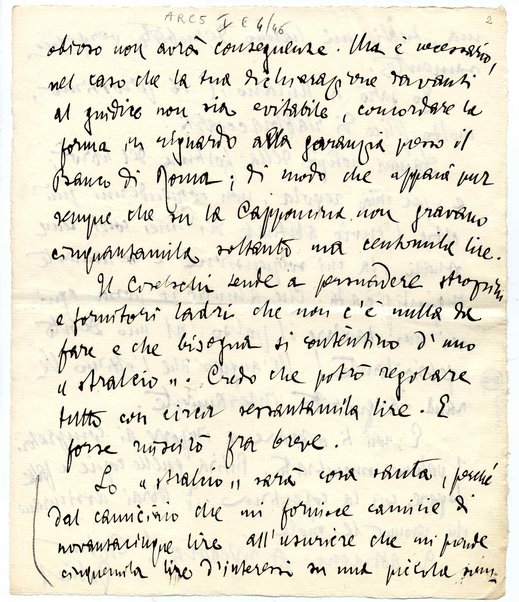 ARC5 I E 4/46
2
non avrà conseguenze. Ma è necessario,
nel caso che la tua dichiarazione davanti
al giudice non sia evitabile, concordare la
forma, in riguardo alla garanzia presso il
Banco di Roma; di modo che appaia pur
sempre che su la Capponcina non gravano
cinquantamila soltanto ma centomila lire.
Il Coselschi tende a persuadere strozzini
e fornitori ladri che non c'è nulla da
fare e che bisogna si contentino d'uno
"stralcio". Credo che potrò regolare
tutto con circa sessantamila lire. E
forse riuscirò fra breve.
Lo "stralcio" sarà cosa santa, perché
dal camiciaio che mi fornisce camicie di
novantacinque lire all'usuriere che mi prende
cinquemila lire d'interessi su una piccola